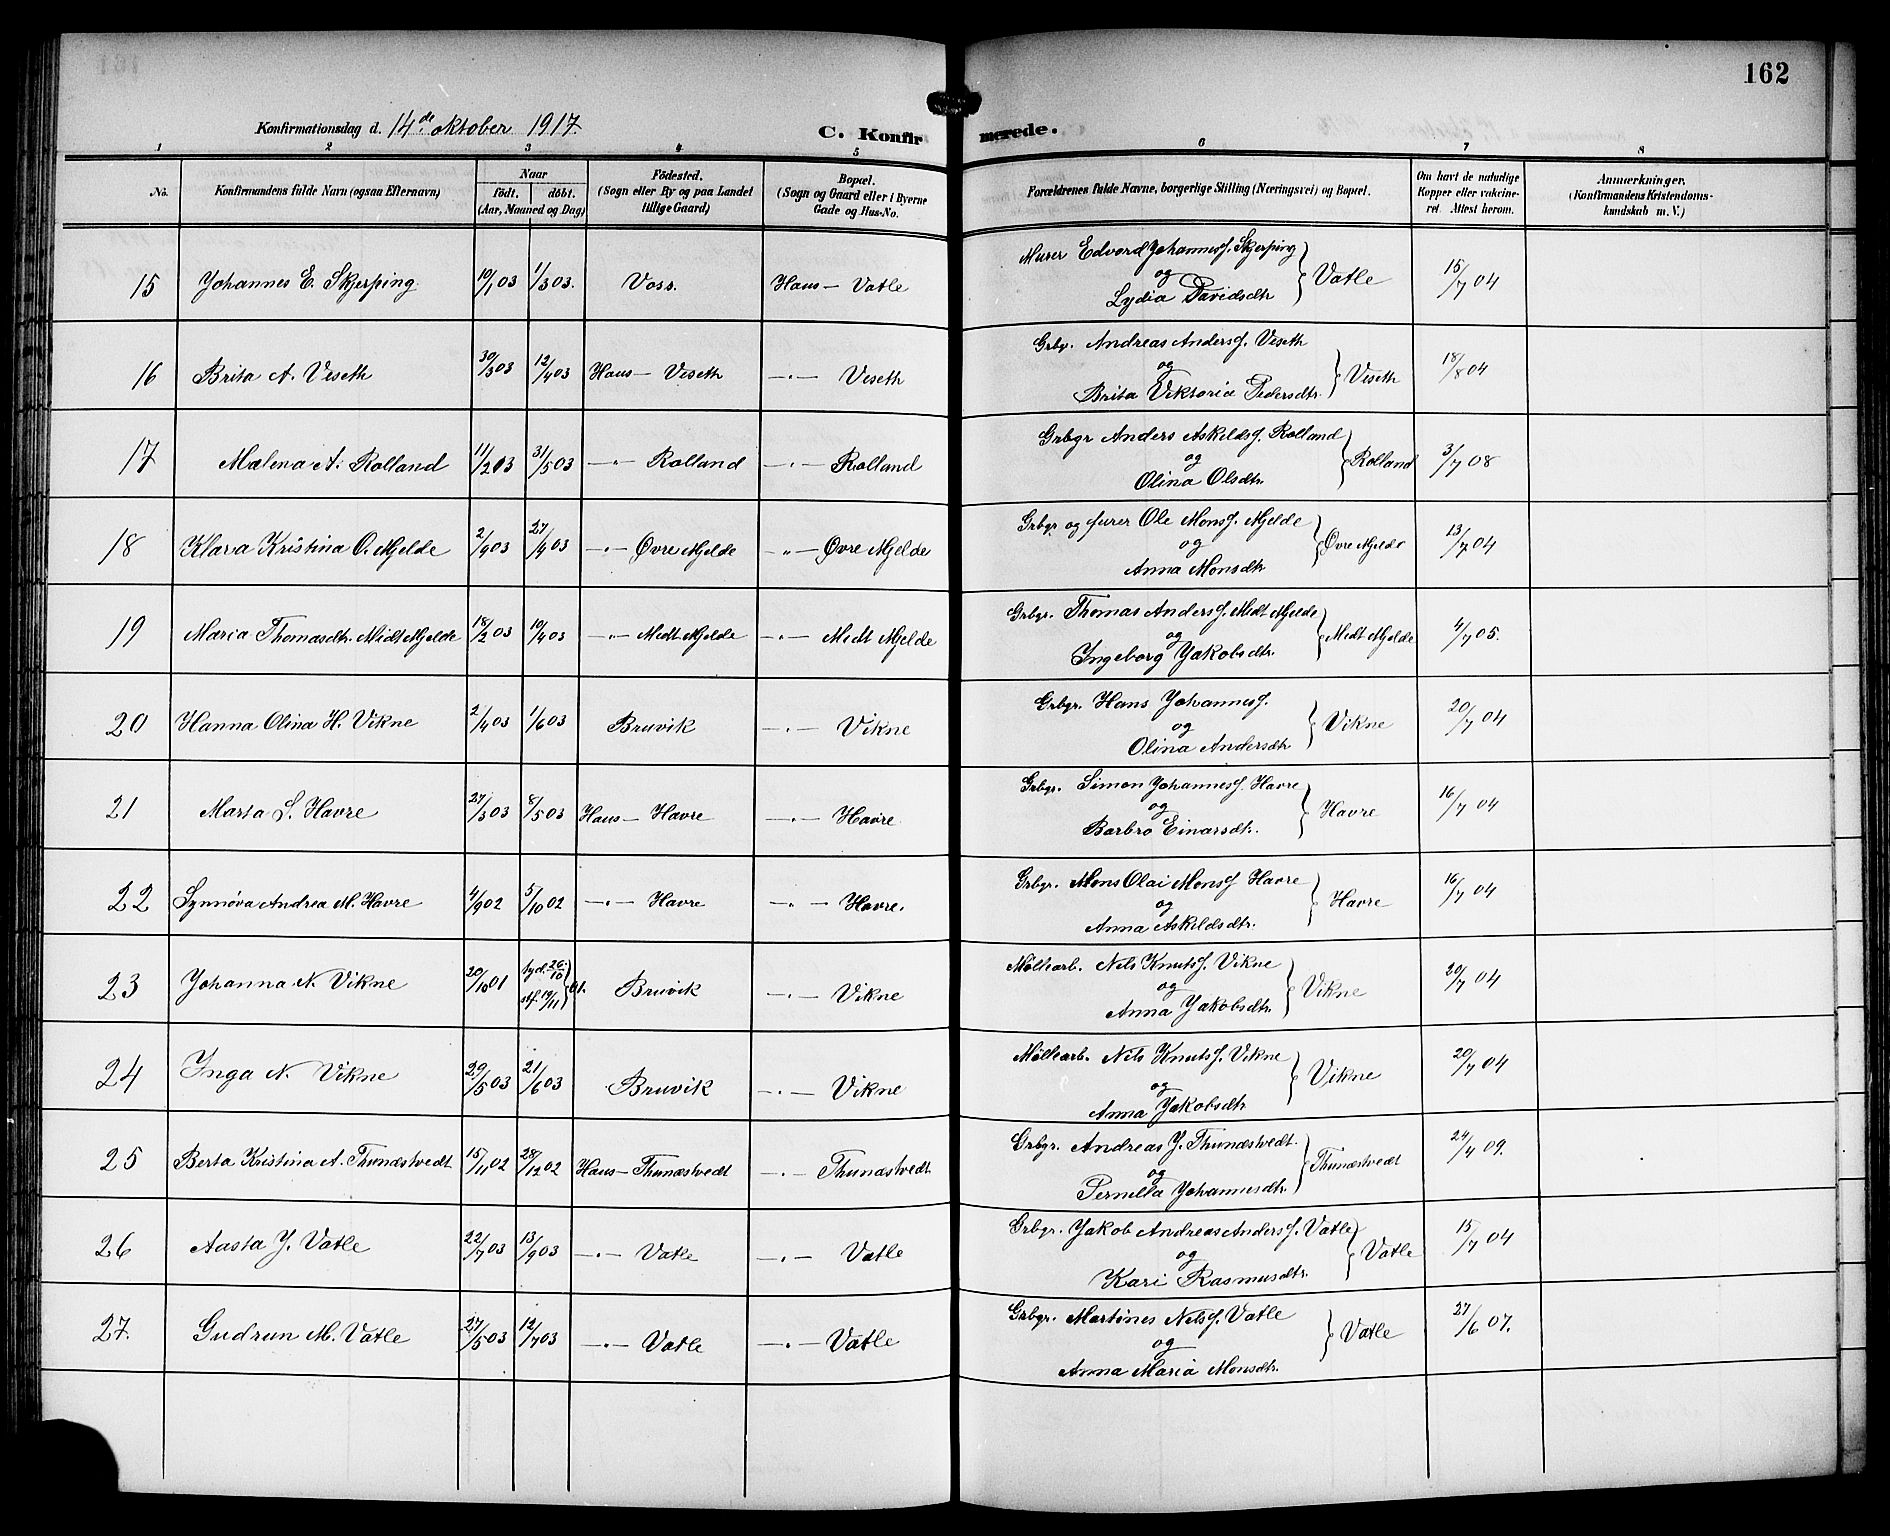 162
Konfirmationsdag d. 14de oktober 1917.
C. Konfir
merede.
1 2 3 4 5 6 7 8
No.
Konfirmandens fulde Navn (ogsaa Efternavn)
Naar
födt. döbt.
(Aar, Maaned og Dag)
Födested.
(Sogn eller By og paa Landet
tillige Gaard)
Bopæl.
(Sogn og Gaard eller i Byerne
Gade og Hus-No.
Forældrenes fulde Navne, borgerlige Stilling (Næringsvei) og Bopæl.
Om havt de naturlige
Kopper eller vakcine-
ret. Attest herom.
Anmærkninger.
(Konfirmandens Kristendoms-
kundskab m. V.)
Murer Edvard Johannesf. Skjerping
15 Johannes E. Skjerping 10/1 03 1/3 03. Voss. Haus — Vatle og } Vatle 15/7 04
Lydia Davidsdtr
Grbgr. Andreas Andersf. Veseth
16 Brita A. Veseth 30/3 03 12/4 03 Haus — Veseth —"— Veseth og } Veseth 18/8 04
Brita Viktoria Pedersdtr.
Grbgr Anders Askildsf. Rolland
17 Malena A. Rolland 11/2 03 31/5 03 —"— Rolland —"— Rolland og } Rolland 3/7 08
Olina Olsdtr.
Grbgr og furer Ole Monsf. Mjelde
18 Klara Kristina O. Mjelde 2/9 03 27/9 03 —"— Øvre Mjelde —"— Øvre Mjelde og } Øvre Mjelde 13/7 04
Anna Monsdtr.
Grbgr. Thomas Andersf. Midt Mjelde
19 Maria Thomasdtr. Midt Mjelde 18/2 03 10/4 03 —"— Midt Mjelde —"— Midt Mjelde og } Midt Mjelde 4/7 05.
Ingeborg Jakobsdtr.
Grbgr. Hans Johannesf.
20 Hanna Olina H. Vikne 2/4 03 1/6 03 Bruvik —"— Vikne og } Vikne 20/7 04
Olina Andersdtr
Grbgr. Simon Johannesf. Havre
21 Marta S. Havre 27/3 03 8/5 03 Haus — Havre —"— Havre og } Havre 16/7 04
Barbro Einarsdtr.
Grbgr. Mons Olai Monsf Havre
22 Synnøva Andrea M. Havre 4/9 02 5/10 02 —"— Havre —"— Havre. og } Havre 16/7 04
Anna Askildsdtr.
Møllearb. Nils Knutsf. Vikne
23 Johanna N. Vikne 20/10 01 26/10 stf. 19/11 } 01. Bruvik —"— Vikne og } Vikne 20/7 04
Anna Jakobsdtr.
Møllearb. Nils Knutsf. Vikne
24 Inga N. Vikne 29/5 03 21/6 03 Bruvik —"— Vikne og } Vikne 20/7 04
Anna Jakobsdtr
Grbgr. Andreas J. Thunæstvedt.
25 Berta Kristina A. Thunæstvedt 15/11 02 28/12 02 Haus — Thunæstvedt —"— Thunæstvedt og } Thunæstvedt 24/7 09.
Pernilla Johannesdtr.
Grbgr. Jakob Andreas Andersf. Vatle
26 Aasta J. Vatle 22/7 03 13/9 03 —"— Vatle —"— Vatle og } Vatle 15/7 04
Kari Rasmusdtr.
Grbgr. Martines Nilsf. Vatle
27. Gudrun M. Vatle 27/5 03 12/7 03 —"— Vatle —"— Vatle og } Vatle 27/6 07.
Anna Maria Monsdtr.